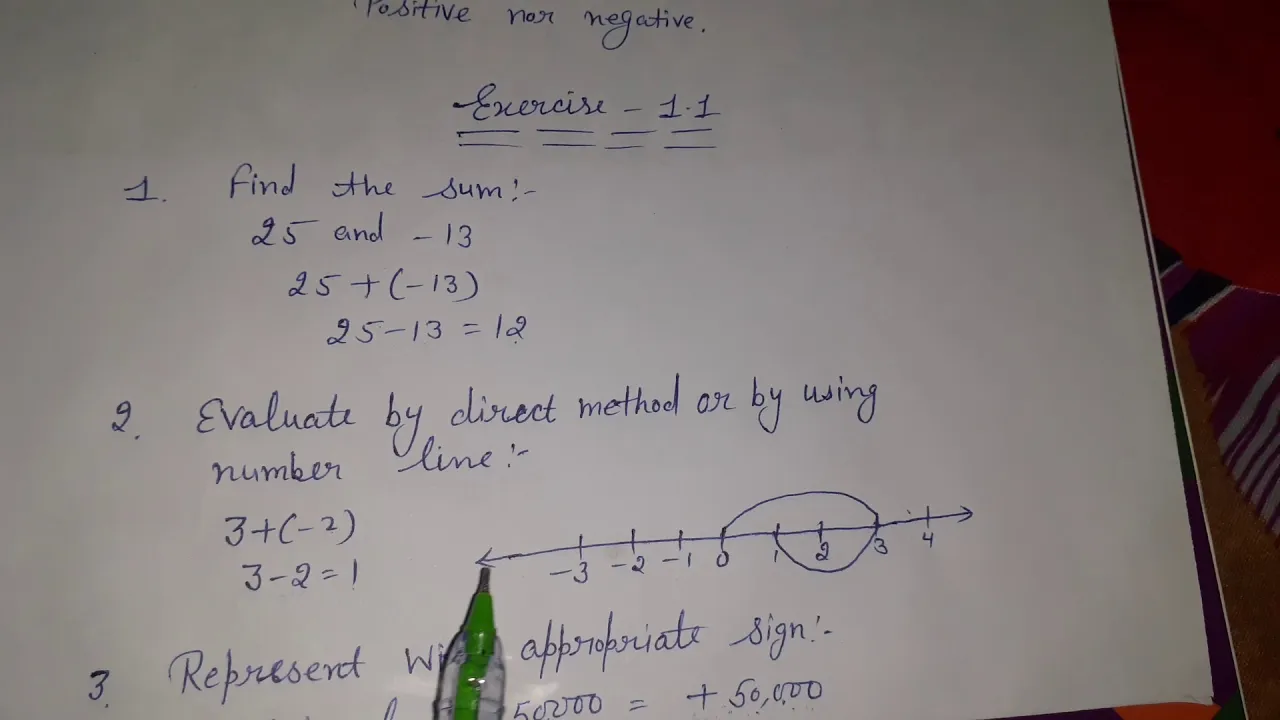 Positive nor negative.
Exercise - 1.1
1. Find the sum:-
25 and -13
25 + (-13)
25 - 13 = 12
2. Evaluate by direct method or by using
number line:-
3+(-2)
3-2=1
-3 -2 -1 0 1 2 3 4
3. Represent appropriate sign:-
50000 = + 50,000